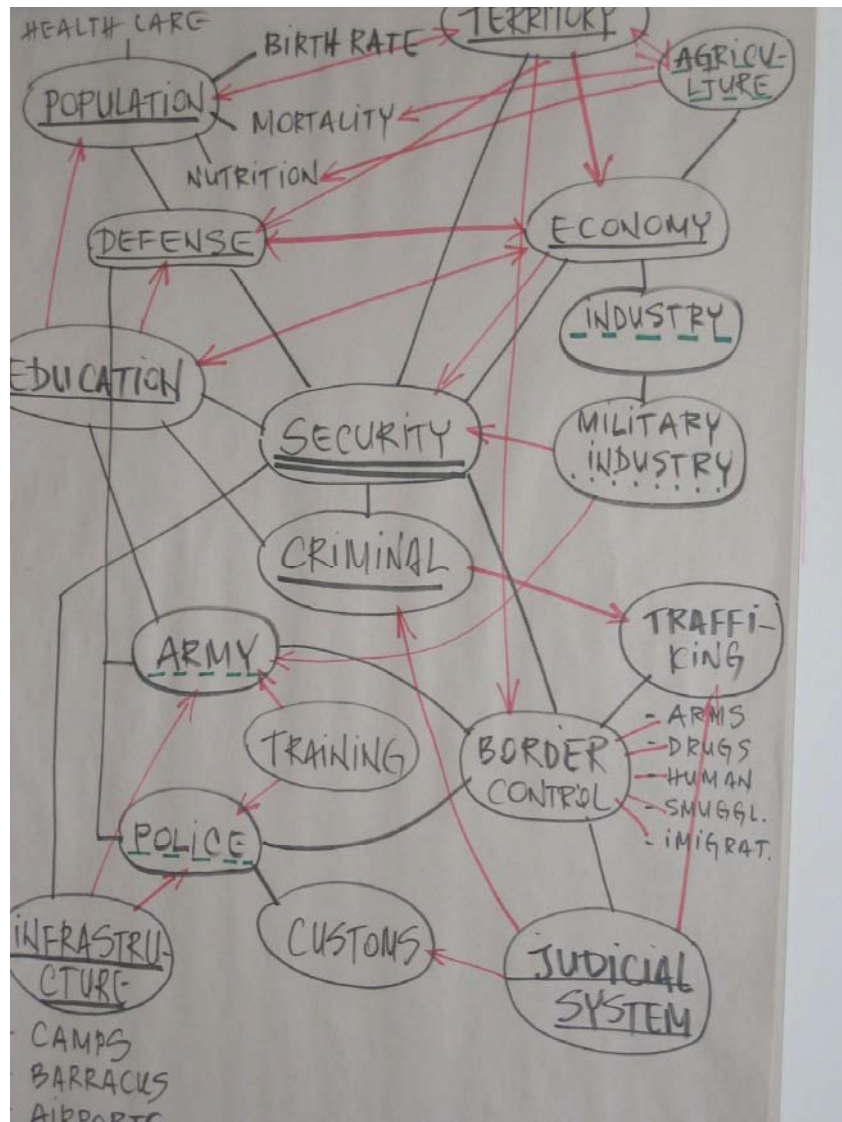 HEALTH CARE
BIRTH RATE
TERRITORY
AGRICU-
LTURE
POPULATION
MORTALITY
NUTRITION
DEFENSE
ECONOMY
INDUSTRY
EDUCATION
SECURITY
MILITARY
INDUSTRY
CRIMINAL
TRAFFI-
KING
ARMY
TRAINING
BORDER
CONTROL
- ARMS
- DRUGS
- HUMAN
- SMUGGL.
- IMIGRAT.
POLICE
INFRASTRU-
CTURE
CUSTOMS
JUDICIAL
SYSTEM
- CAMPS
- BARRACKS
- AIRPORTS